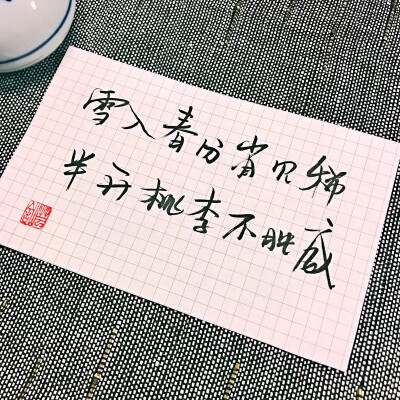 雪入春分省见稀
半开桃李不胜威